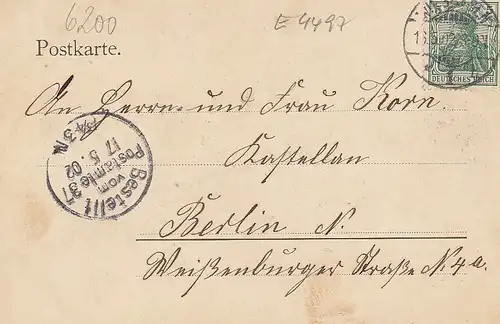 6,200
E 4497
Postkarte.
DEUTSCHES REICH
An Herrn und Frau Korn.
Kastellan
Berlin N.
Weißenburger Straße N. 4a.
Bestellt
vom
Postamte 37
17 5 02